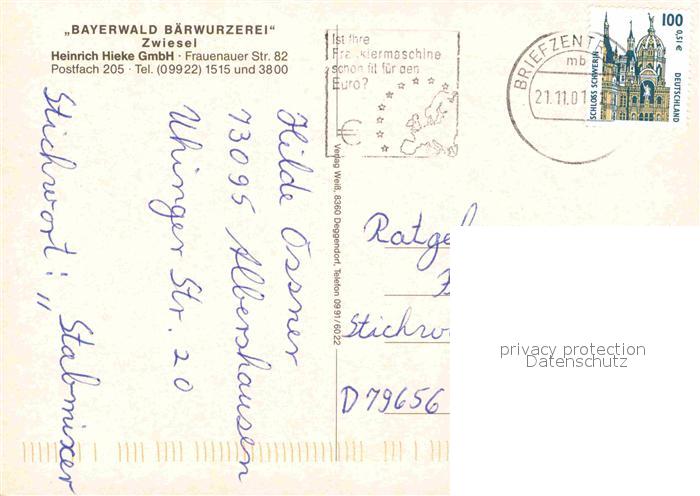 „BAYERWALD BÄRWURZEREI"
Zwiesel
Heinrich Hieke GmbH · Frauenauer Str. 82
Postfach 205 · Tel. (09922) 1515 und 3800
Ist Ihre
Frankiermaschine
schon fit für den
Euro?
€
BRIEFZENTR
mb
21.11.01
100
0,51 €
SCHLOSS SCHWERIN
DEUTSCHLAND
Hilde Ossner
73095 Albershausen
Uhinger Str. 20
Stichwort: „Stabmixer
Verlag Weiß, 8360 Deggendorf, Telefon 0991/6022
Ratge
Stichwo
D 79656
privacy protection
Datenschutz